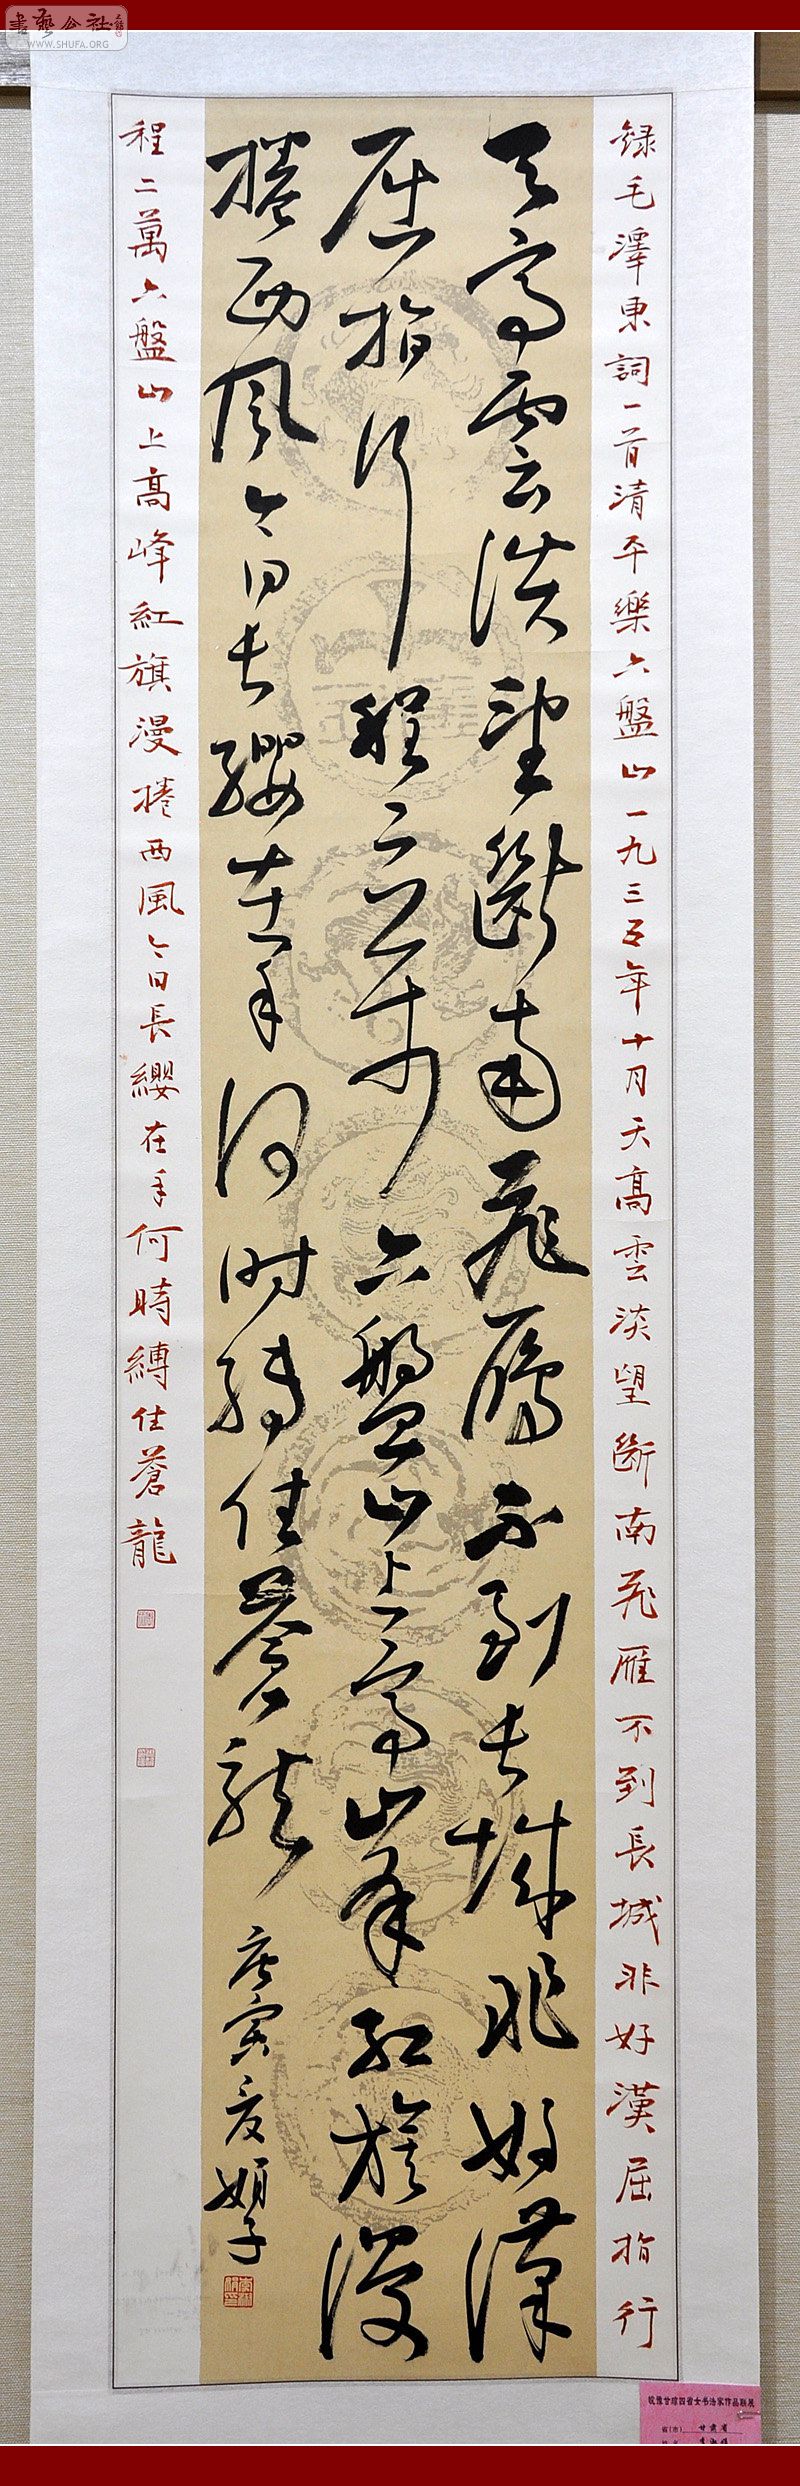 書藝公社
WWW.SHUFA.ORG
録毛澤東詞一首清平樂六盤山一九三五年十月天高雲淡望斷南飛雁不到長城非好漢屈指行
天高雲淡望斷南飛雁不到長城非好漢
屈指行程二萬六盤山上高山峯紅旗漫
捲西風今日長纓在手何时縛住蒼龍
庚寅夏娟子
程二萬六盤山上高峰紅旗漫捲西風今日長纓在手何時縛住蒼龍
皖豫甘琼四省女书法家作品联展
省(市) 甘肃省